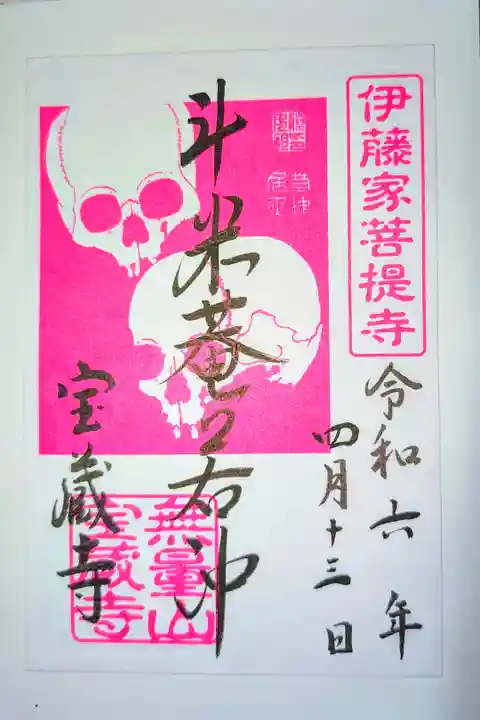 伊藤家菩提寺
令和六年
四月十三日
斗米菴若冲
宝蔵寺
無量山
宝蔵寺